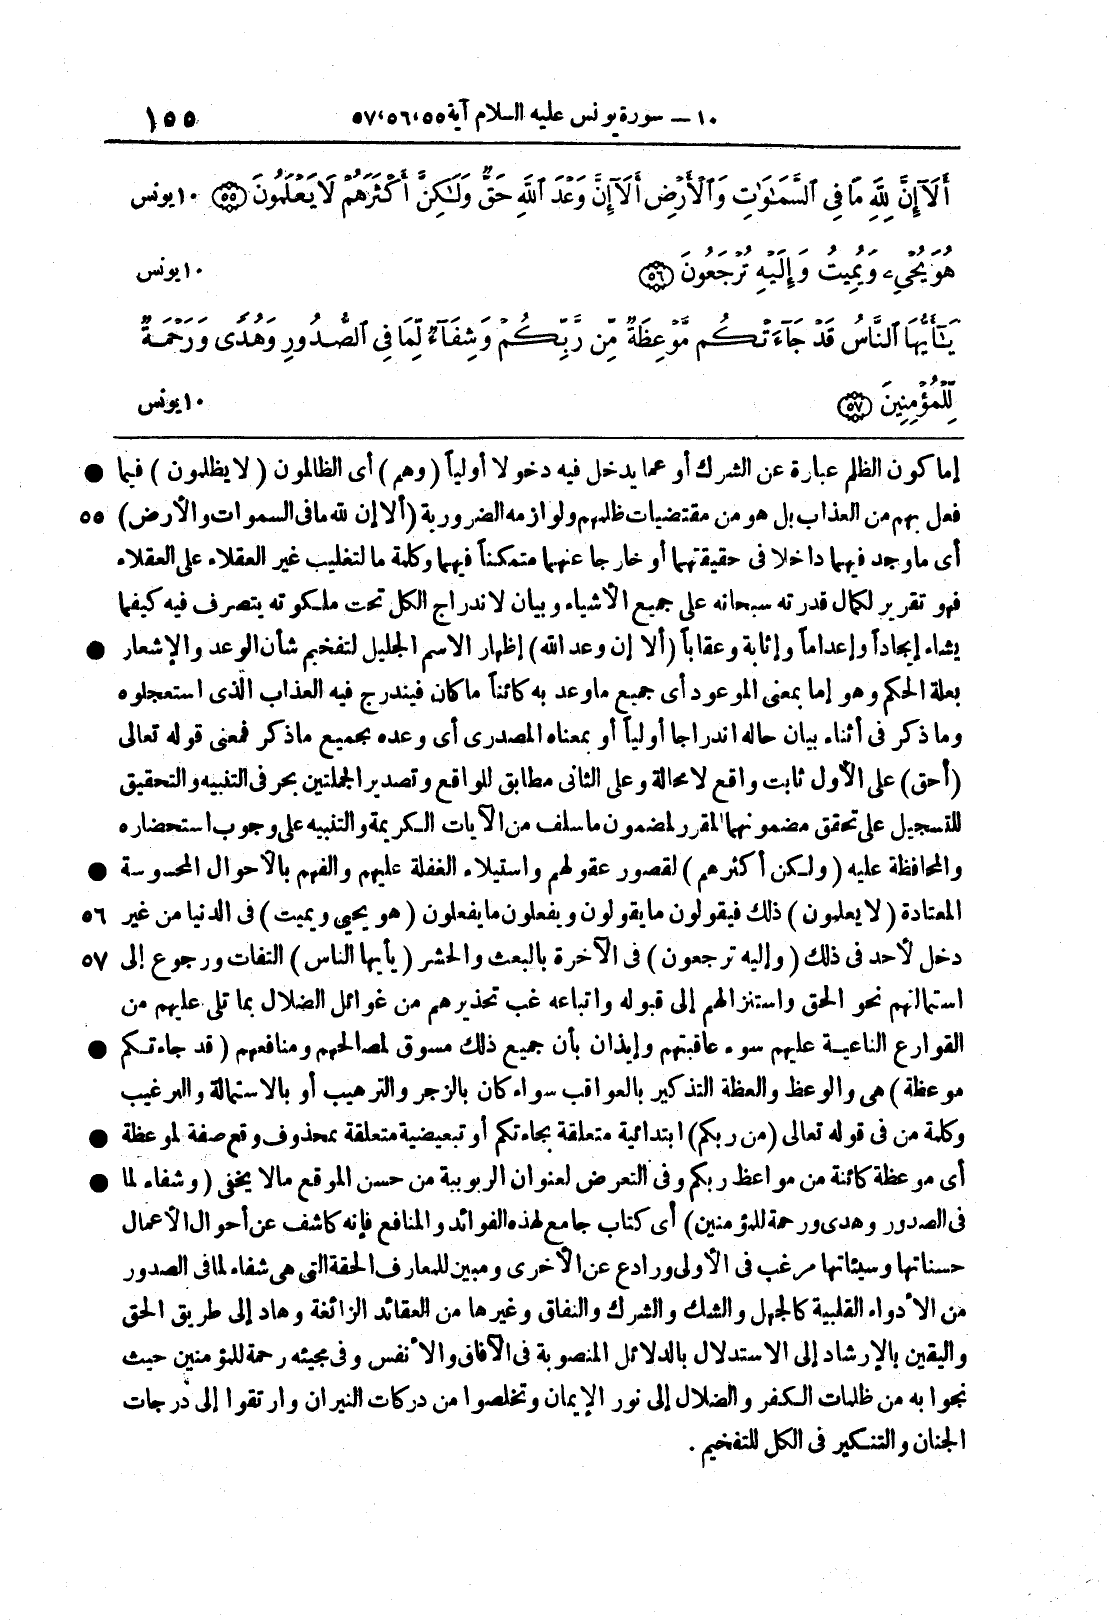 ١٠ – سورة يونس عليه السلام آية ٥٥،٥٦،٥٧ ١٥٥
أَلَآ إِنَّ لِلَّهِ مَا فِى ٱلسَّمَـٰوَٰتِ وَٱلْأَرْضِ أَلَآ إِنَّ وَعْدَ ٱللَّهِ حَقٌّ وَلَـٰكِنَّ أَكْثَرَهُمْ لَا يَعْلَمُونَ ٥٥ ١٠ يونس
هُوَ يُحْىِۦ وَيُمِيتُ وَإِلَيْهِ تُرْجَعُونَ ٥٦ ١٠ يونس
يَـٰٓأَيُّهَا ٱلنَّاسُ قَدْ جَآءَتْكُم مَّوْعِظَةٌ مِّن رَّبِّكُمْ وَشِفَآءٌ لِّمَا فِى ٱلصُّدُورِ وَهُدًى وَرَحْمَةٌ
لِّلْمُؤْمِنِينَ ٥٧ ١٠ يونس
إما كون الظلم عبارة عن الشرك أو عما يدخل فيه دخولا أولياً (وهم) أى الظالمون (لا يظلمون) فيما ●
فعل بهم من العذاب بل هو من مقتضيات ظلمهم ولوازمه الضرورية (ألا إن لله ما فى السموات والأرض) ٥٥
أى ما وجد فيهما داخلا فى حقيقتهما أو خارجا عنهما متمكناً فيهما وكلمة ما لتغليب غير العقلاء على العقلاء
فهو تقرير لكمال قدرته سبحانه على جميع الأشياء وبيان لاندراج الكل تحت ملكوته يتصرف فيه كيفما
يشاء إيجاداً وإعداماً وإثابة وعقاباً (ألا إن وعد الله) إظهار الاسم الجليل لتفخيم شأن الوعد والإشعار ●
بعلة الحكم وهو إما بمعنى الموعود أى جميع ما وعد به كائناً ما كان فيندرج فيه العذاب الذى استعجلوه
وما ذكر فى أثناء بيان حاله اندراجا أولياً أو بمعناه المصدرى أى وعده بجميع ما ذكر فمعنى قوله تعالى
(أحق) على الأول ثابت واقع لا محالة وعلى الثانى مطابق للواقع وتصدير الجملتين بحرفى التنبيه والتحقيق
للتسجيل على تحقق مضمونهما المقرر لمضمون ما سلف من الآيات الكريمة والتنبيه على وجوب استحضاره
والمحافظة عليه (ولكن أكثرهم) لقصور عقولهم واستيلاء الغفلة عليهم والفهم بالأحوال المحسوسة ●
المعتادة (لا يعلمون) ذلك فيقولون ما يقولون ويفعلون ما يفعلون (هو يحيى ويميت) فى الدنيا من غير ٥٦
دخل لأحد فى ذلك (وإليه ترجعون) فى الآخرة بالبعث والحشر (يأيها الناس) التفات ورجوع إلى ٥٧
استمالتهم نحو الحق واستنزالهم إلى قبوله واتباعه غب تحذيرهم من غوائل الضلال بما تلى عليهم من
القوارع الناعية عليهم سوء عاقبتهم وإيذان بأن جميع ذلك مسوق لمصالحهم ومنافعهم (قد جاءتكم ●
موعظة) هى والوعظ والعظة التذكير بالعواقب سواء كان بالزجر والترهيب أو بالاستمالة والترغيب
وكلمة من فى قوله تعالى (من ربكم) ابتدائية متعلقة بجاءتكم أو تبعيضية متعلقة بمحذوف وقع صفة لموعظة ●
أى موعظة كائنة من مواعظ ربكم وفى التعرض لعنوان الربوبية من حسن الموقع مالا يخفى (وشفاء لما ●
فى الصدور وهدى ورحمة للمؤمنين) أى كتاب جامع لهذه الفوائد والمنافع فإنه كاشف عن أحوال الأعمال
حسناتها وسيئاتها مرغب فى الأولى ورادع عن الأخرى ومبين للمعارف الحقة التى هى شفاء لما فى الصدور
من الأدواء القلبية كالجهل والشك والشرك والنفاق وغيرها من العقائد الزائغة وهاد إلى طريق الحق
واليقين بالإرشاد إلى الاستدلال بالدلائل المنصوبة فى الآفاق والأنفس وفى مجيئه رحمة للمؤمنين حيث
نجوا به من ظلمات الكفر والضلال إلى نور الإيمان وتخلصوا من دركات النيران وارتقوا إلى درجات
الجنان والتنكير فى الكل للتفخيم .